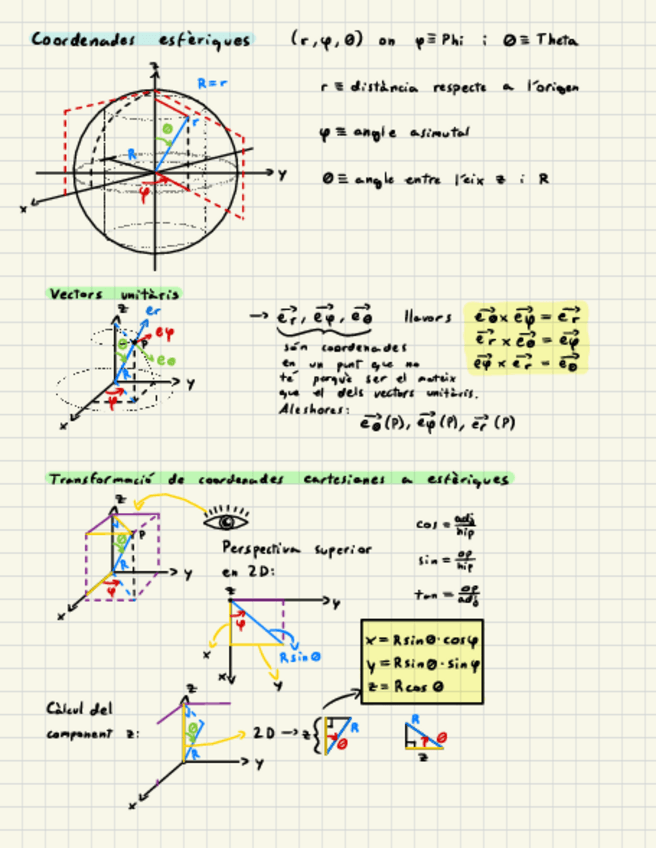 Coordenades esfèriques (r,φ,θ) on φ≡Phi i θ≡Theta
z
R=r
r ≡ distància respecte a l'origen
r
θ
φ ≡ angle azimutal
R
y
θ ≡ angle entre l'eix z i R
φ
x
Vectors unitàris
z
er
eφ
P
θ
eθ
R
y
φ
x
→ er, eφ, eθ llavors eθ x eφ = er
er x eθ = eφ
eφ x er = eθ
són coordenades
en un punt que no
té perquè ser el mateix
que el dels vectors unitàris.
Aleshores:
eθ(P), eφ(P), er(P)
Transformació de coordenades cartesianes a esfèriques
z
P
θ
R
y
φ
x
Perspectiva superior
en 2D:
cos = adj/hip
sin = op/hip
tan = op/adj
z
y
φ
x
Rsinθ
x
y
x = Rsinθ·cosφ
y = Rsinθ·sinφ
z = Rcosθ
Càlcul del
component z:
z
θ
R
y
x
2D → z
R
θ
R
θ
z